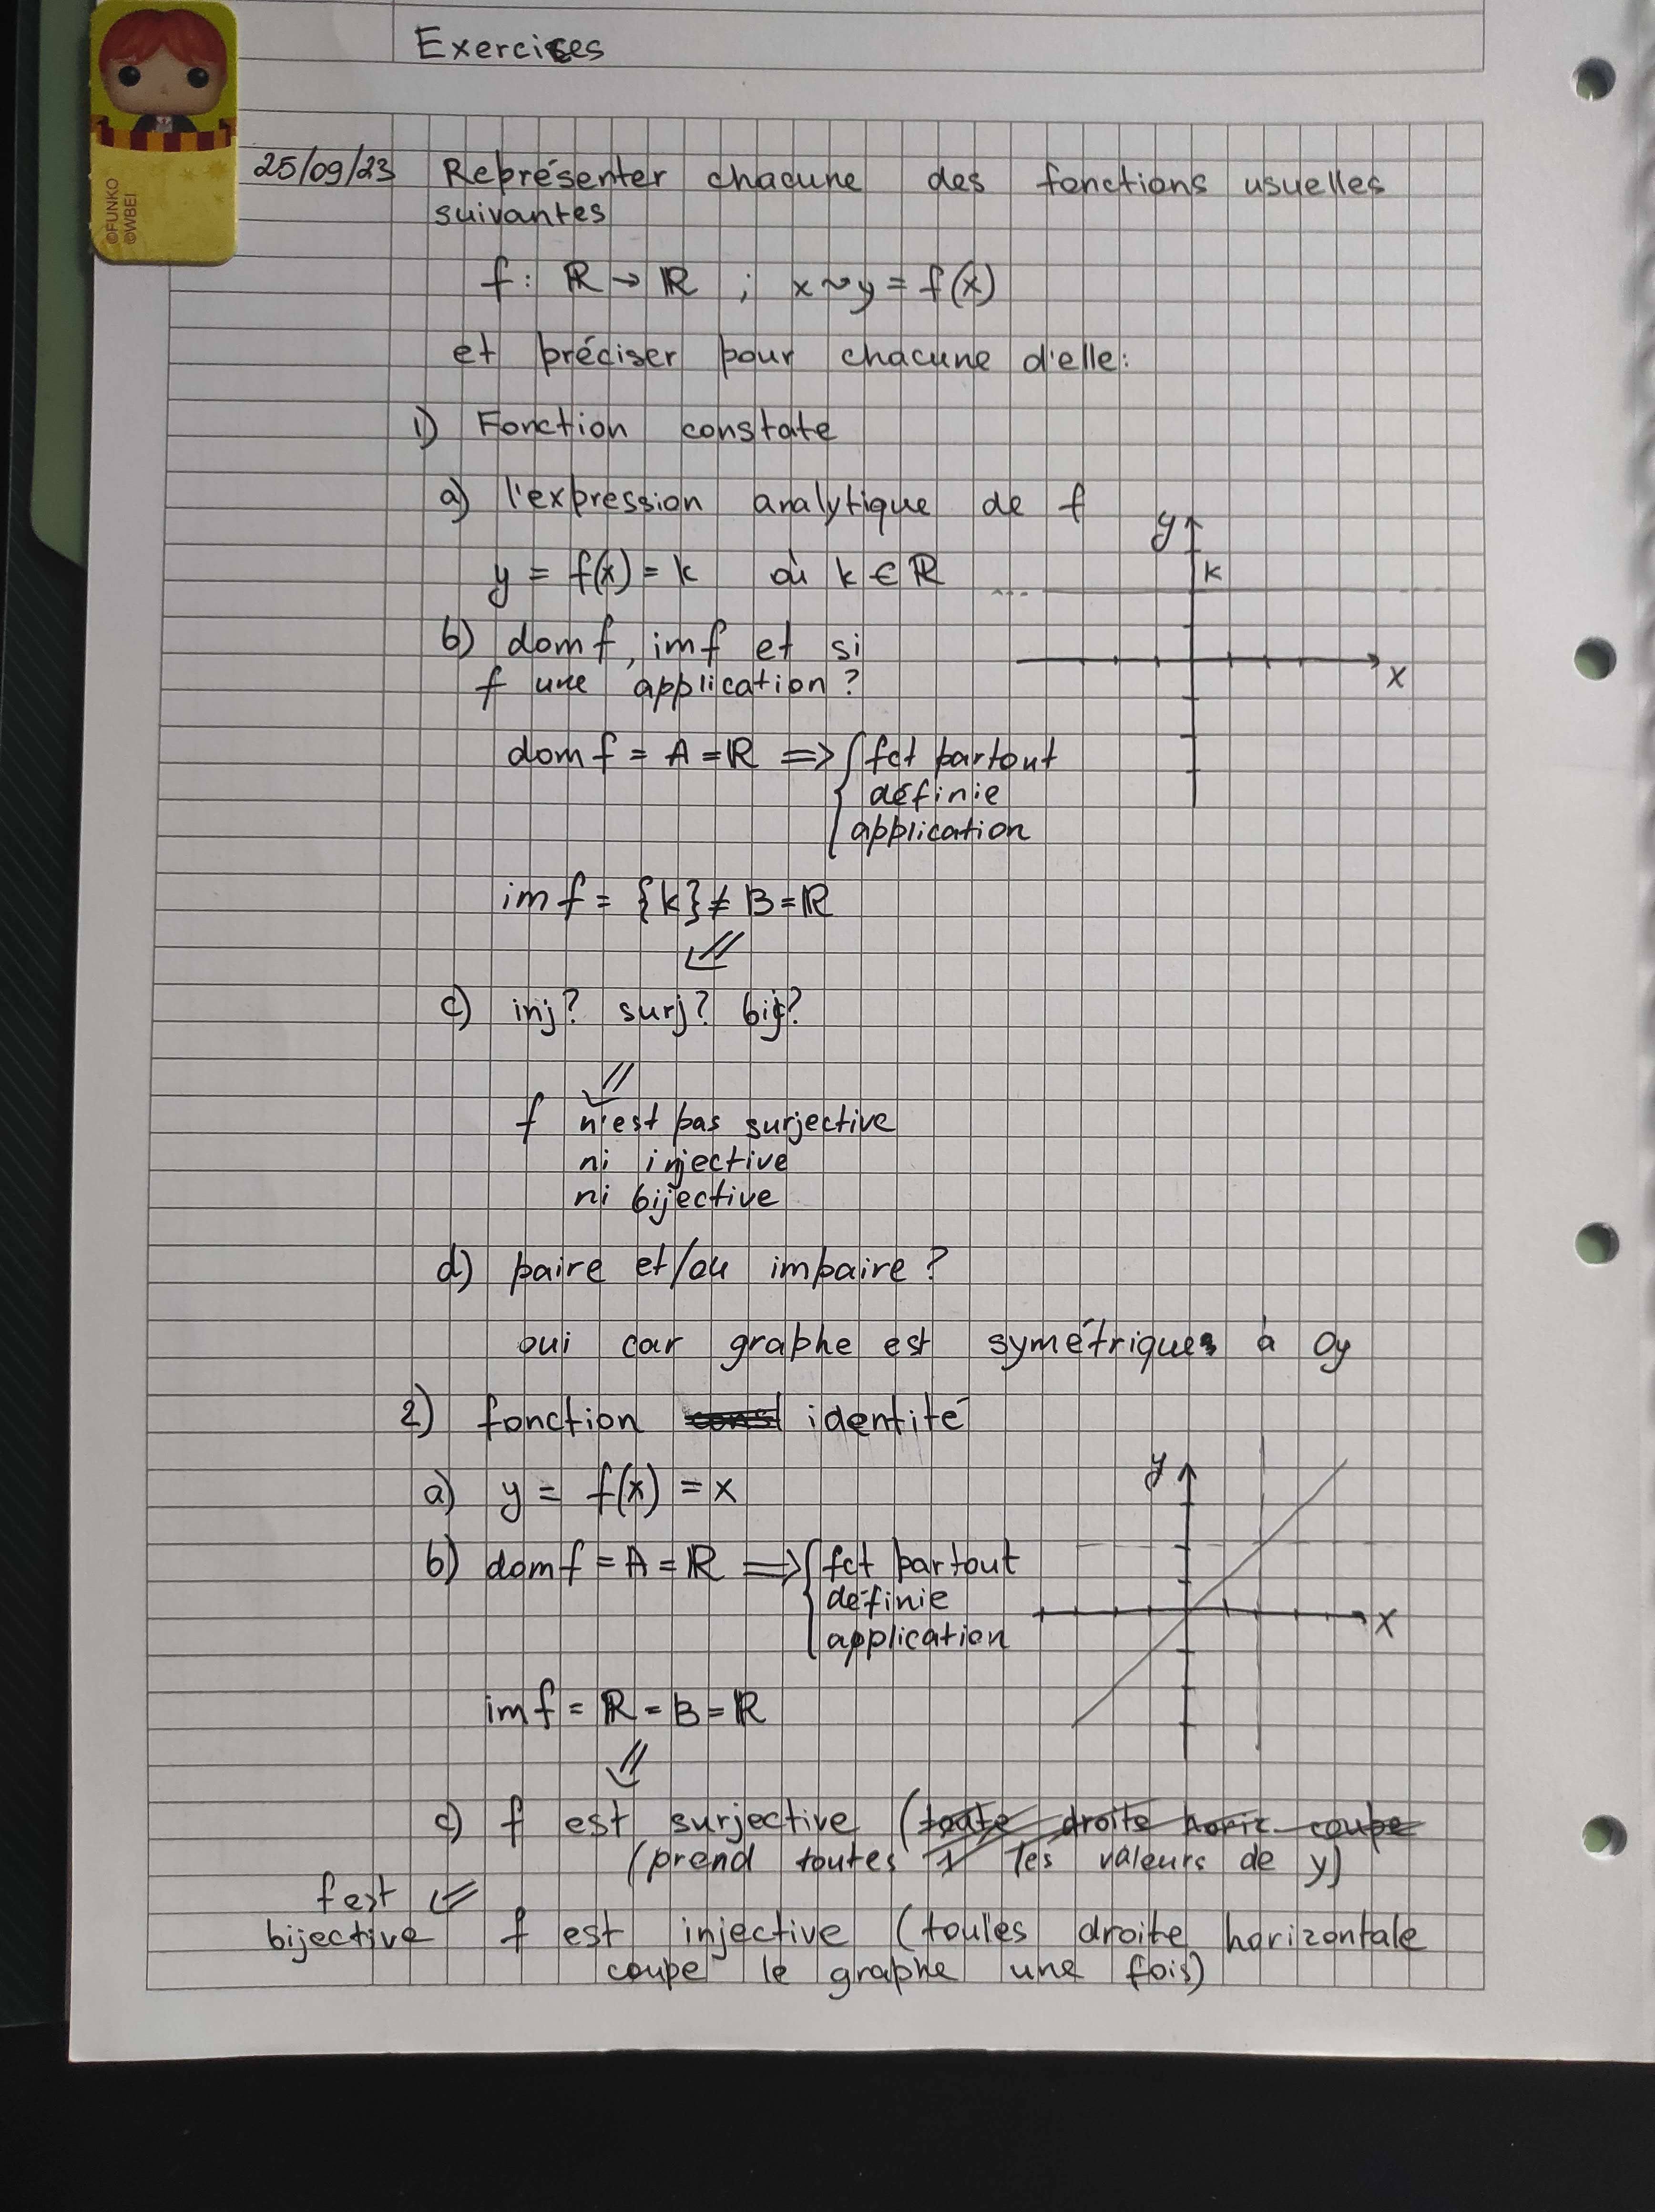 Exercices
©FUNKO
©WBEI
25/09/23 Représenter chacune des fonctions usuelles
suivantes
f: ℝ → ℝ ; x ~ y = f(x)
et préciser pour chacune d'elle:
1) Fonction constate
a) l'expression analytique de f
y = f(x) = k où k ∈ ℝ
y
k
x
b) dom f, im f et si
f une application ?
dom f = A = ℝ ⟹ { fct partout
définie
application
im f = {k} ≠ B = ℝ
⇙
c) inj? surj? bij?
⇙
f n'est pas surjective
ni injective
ni bijective
d) paire et/ou impaire ?
oui car graphe est symétrique à Oy
2) fonction const identité
a) y = f(x) = x
y
x
b) dom f = A = ℝ ⟹ { fct partout
définie
application
im f = ℝ = B = ℝ
⇙
c) f est surjective (toute droite horiz. coupe
(prend toutes les valeurs de y)
f est ⇙
bijective f est injective (toules droite horizontale
coupe le graphe une fois)